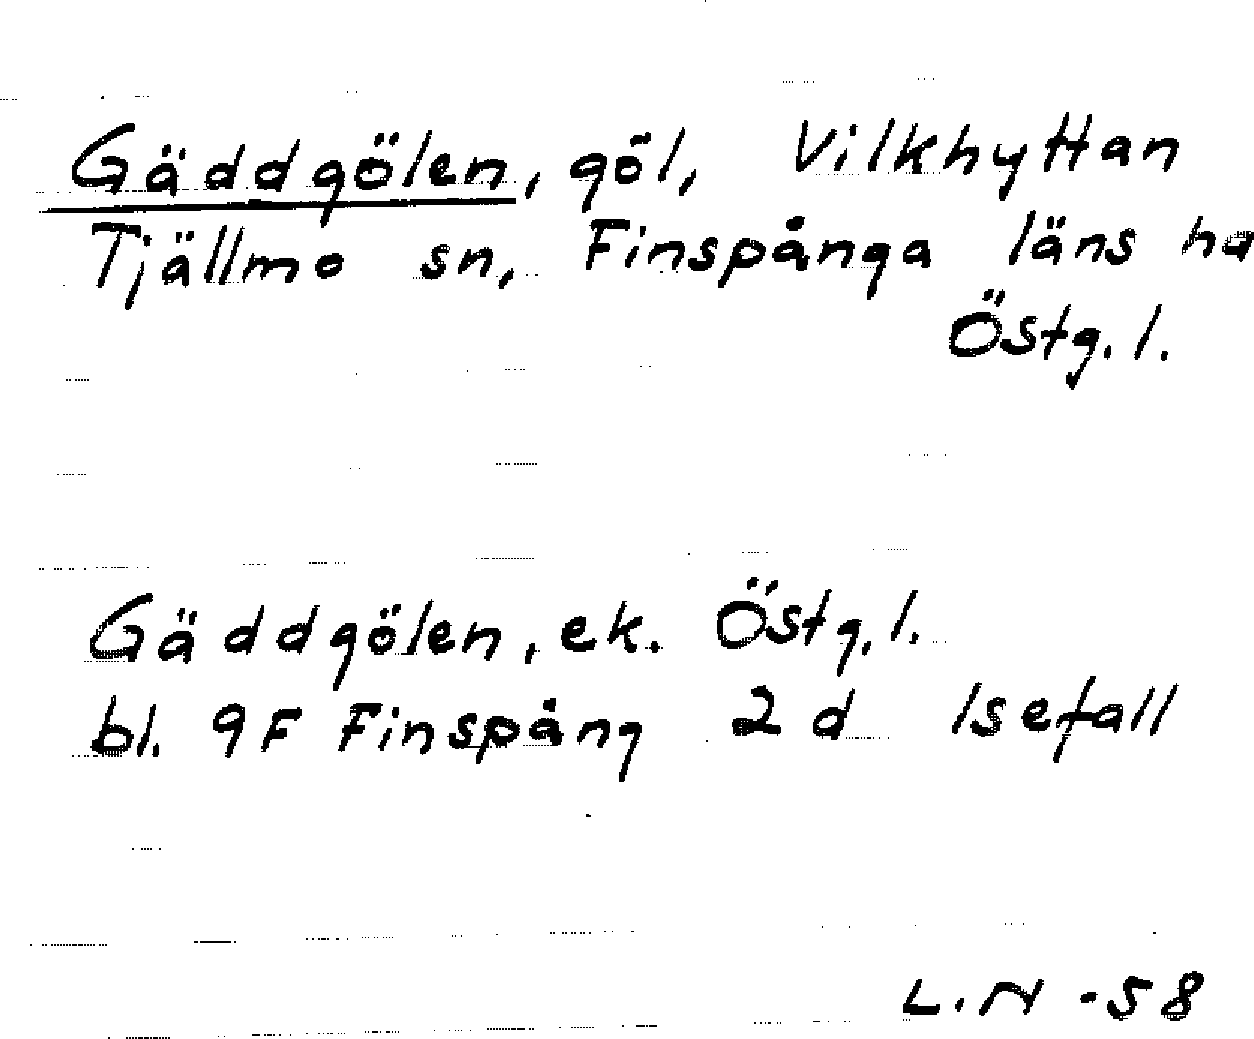 Gäddgölen, göl, Vilkhyttan
Tjällmo sn, Finspånga läns ha
Östg. l.
Gäddgölen, ek. Östg. l.
bl. 9F Finspång 2d Isefall
L.N -58